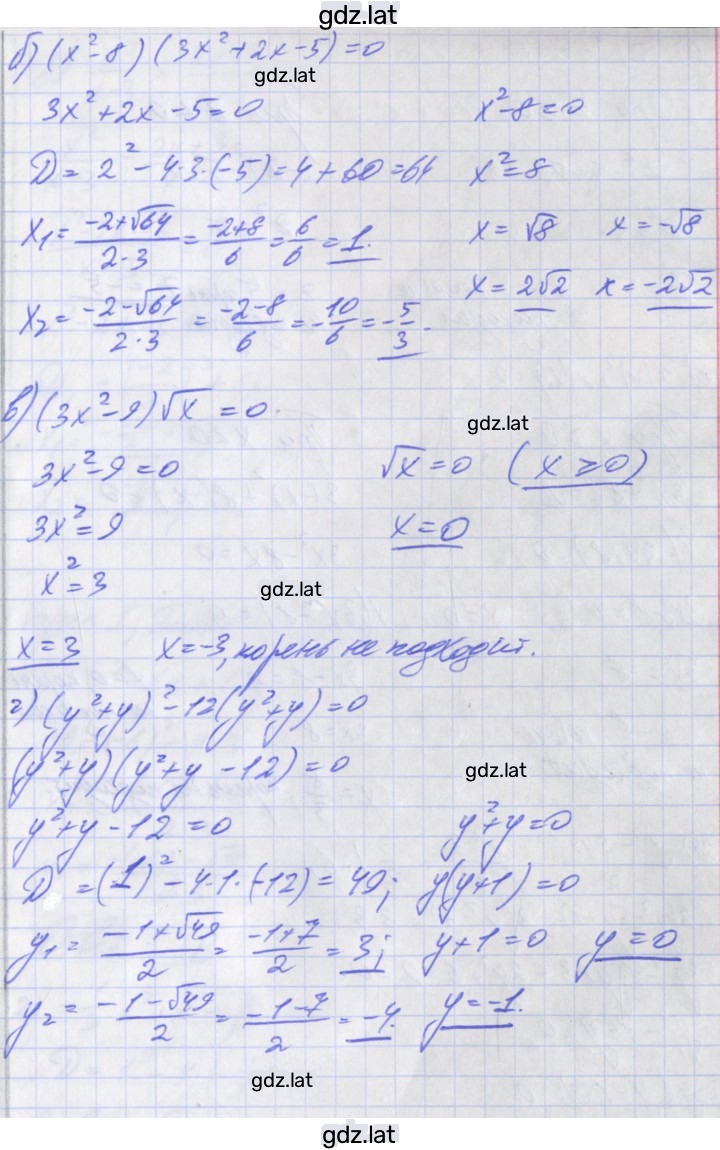 gdz.lat
б) (x²-8)(3x²+2x-5)=0
gdz.lat
3x²+2x-5=0 x²-8=0
D = 2²-4·3·(-5)=4+60=64 x²=8
x₁= (-2+√64)/(2·3) = (-2+8)/6 = 6/6 = 1. x=√8 x=-√8
x=2√2 x=-2√2
x₂= (-2-√64)/(2·3) = (-2-8)/6 = -10/6 = -5/3.
в) (3x²-9)√x = 0
gdz.lat
3x²-9=0 √x=0 (x≥0)
3x²=9 x=0
x²=3
gdz.lat
x=3 x=-3, корень не подходит.
г) (y²+y)²-12(y²+y)=0
(y²+y)(y²+y-12)=0
gdz.lat
y²+y-12=0 y²+y=0
D =(1)²-4·1·(-12)=49; y(y+1)=0
y₁= (-1+√49)/2 = (-1+7)/2 = 3; y+1=0 y=0
y₂= (-1-√49)/2 = (-1-7)/2 = -4. y=-1.
gdz.lat
gdz.lat